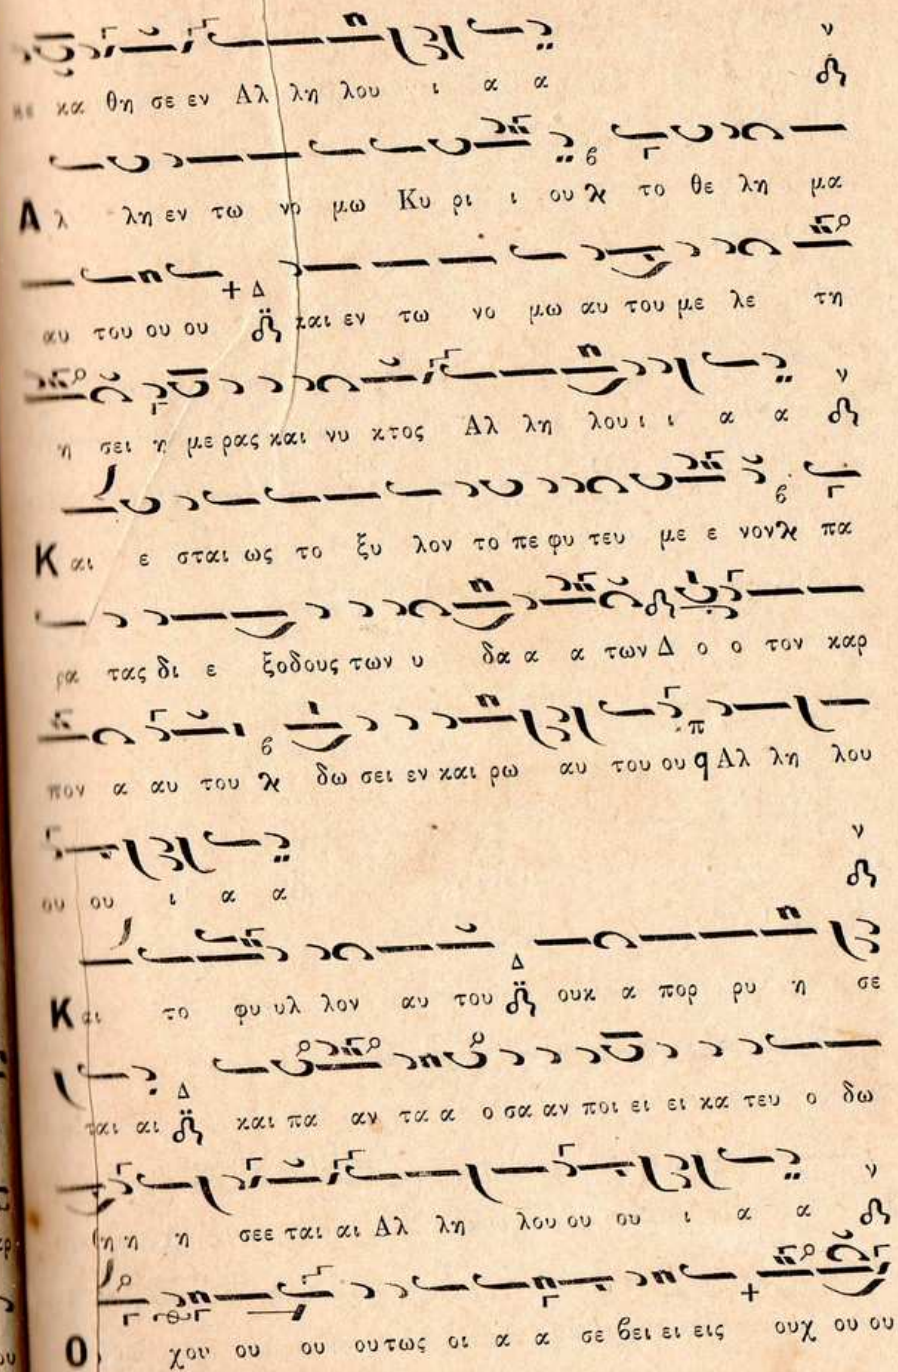 κα θη σε εν Αλ λη λου ι α α
Α λ λη εν τω νο μω Κυ ρι ι ου το θε λη μα
αυ του ου ου και εν τω νο μω αυ του με λε τη
η σει η με ρας και νυ κτος Αλ λη λου ι ι α α
Κ αι ε σται ως το ξυ λον το πε φυ τευ με ε νον πα
ρα τας δι ε ξοδους των υ δα α α των Δ ο ο τον καρ
πον α αυ του δω σει εν και ρω αυ του ου Αλ λη λου
ου ου ι α α
Κ αι το φυ υλ λον αυ του ουκ α πορ ρυ η σε
ται αι και πα αν τα α α ο σα αν ποι ει ει κα τευ ο δω
θη η η σε ε ται αι Αλ λη λου ου ου ι α α
Ο χου ου ου ου τως οι α α σε βει ει εις ουχ ου ου